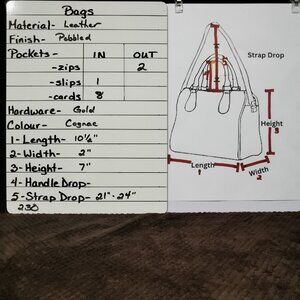 Bags
Material- Leather
Finish- Pebbled
Pockets- IN OUT
-zips 2
-slips 1
-cards 8
Hardware- Gold
Colour- Cognac
1-Length- 10½"
2-Width- 2"
3-Height- 7"
4-Handle Drop-
5-Strap Drop- 21"-24"
230
Strap Drop
Height
3
Length
1
Width
2